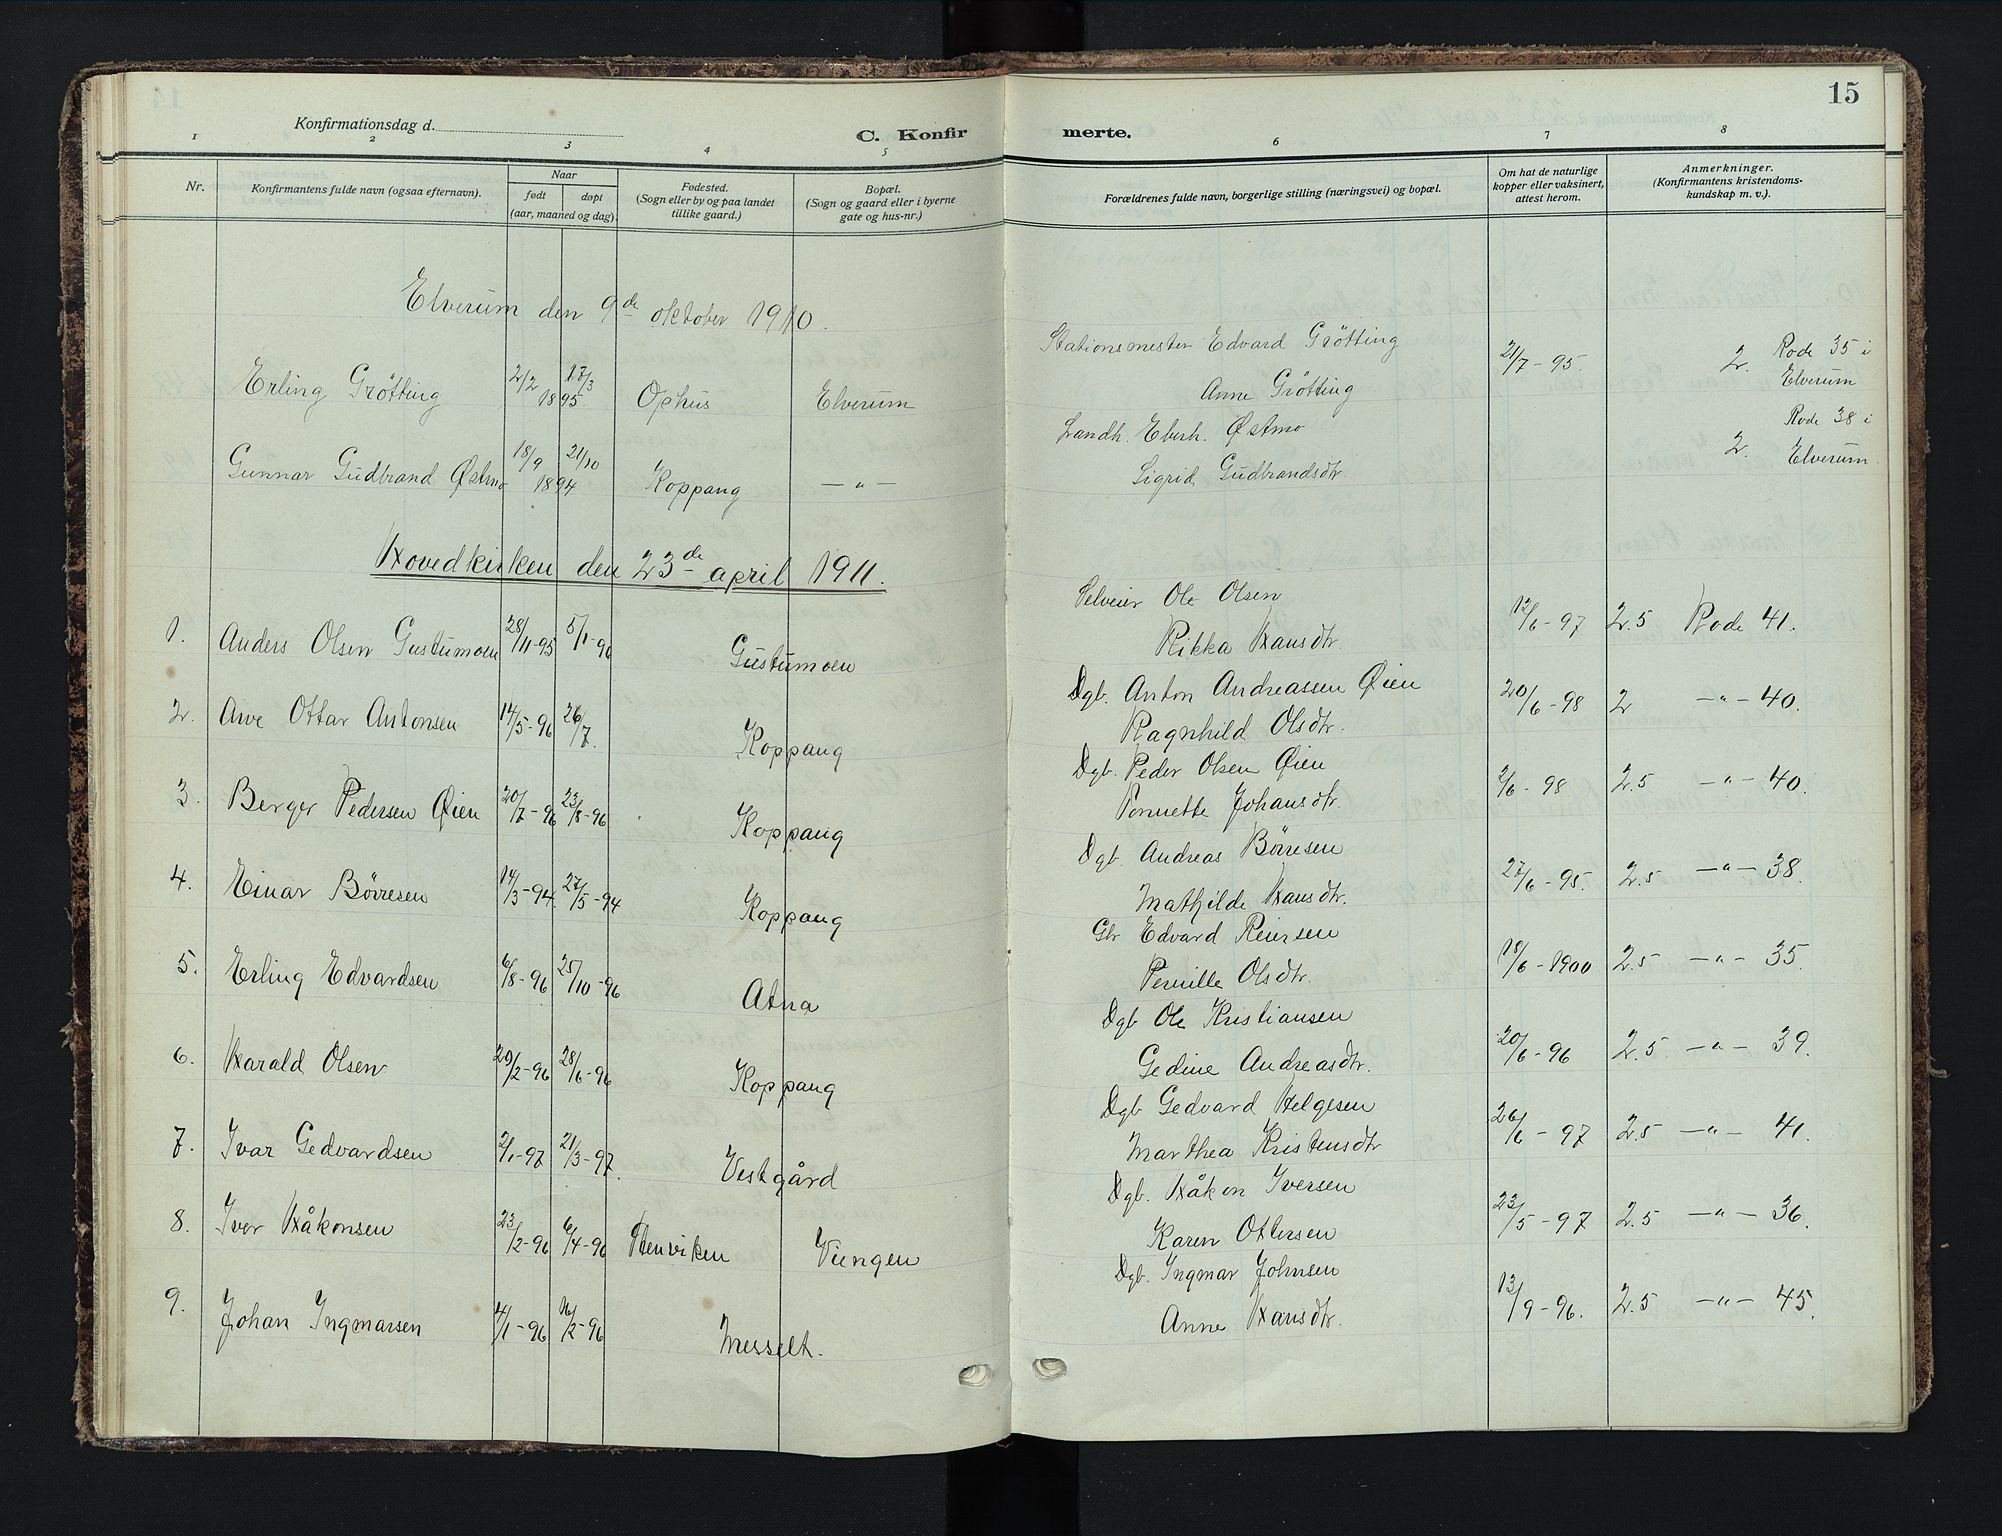 15
Konfirmationsdag d.
C. Konfirmerte.
1 2 3 4 5 6 7 8
Nr.
Konfirmantens fulde navn (ogsaa efternavn).
Naar
født døpt
(aar, maaned og dag).
Fødested.
(Sogn eller by og paa landet
tillike gaard.)
Bopæl.
(Sogn og gaard eller i byerne
gate og hus-nr.)
Forældrenes fulde navn, borgerlige stilling (næringsvei) og bopæl.
Om hat de naturlige
kopper eller vaksinert,
attest herom.
Anmerkninger.
(Konfirmantens kristendoms-
kundskap m. v.).
Elverum den 9de oktober 1910.
Stationsmester Edvard Grötting
Erling Grötting 2/2 17/3 1895 Ophus Elverum Anne Grötting 21/7 - 95. 2. Rode 35 i Elverum
Landh. Eberh. Østmo
Gunnar Gudbrand Østmo 18/9 21/10 1894 Koppang — " — Sigrid Gudbrandsdtr. 2. Rode 38 i Elverum.
Hovedkirken den 23de april 1911.
Selveier Ole Olsen
1. Anders Olsen Gustumoen 28/11-95 5/1-96 Gustumoen Rikka Hansdtr. 12/6-97 2.5 Rode 41.
Dgb. Anton Andreassen Øien
2. Arve Ottar Antonsen 14/5-96 26/7. Koppang Ragnhild Olsdtr. 20/6-98 2 — " — 40.
Dgb. Peder Olsen Øien
3. Berger Pedersen Øien 20/7-96 23/8-96 Koppang Ponnette Johansdtr. 2/6-98 2.5 — " — 40.
Dgb. Andreas Börresen
4. Einar Börresen 14/3-94. 27/5-94 Koppang Mathilde Hansdtr. 27/6-95. 2.5 — " — 38.
Gbr Edvard Reiersen
5. Erling Edvardsen 6/8-96 25/10-96 Atna Pernille Olsdtr. 18/6-1900 2.5 — " — 35.
Dgb Ole Kristiansen
6. Harald Olsen 20/2-96 28/6-96 Koppang Gedine Andreasdtr. 20/6-96 2.5. — " — 39.
Dgb Gedvard Helgesen
7. Ivar Gedvardsen 2/1-97 21/3-97. Vestgård Marthea Kristensdtr 26/6-97 2.5 — " — 41.
Dgb. Håkon Iversen
8. Iver Håkonsen 23/2-96 6/4-96 Stenviken Viengen Karen Ottersen 23/5-97 2.5 — " — 36.
Dgb. Ingmar Johnsen
9. Johan Ingmarsen 4/1-96 16/2-96 Messelt. Anne Hansdtr. 12/9-96. 2.5 — " — 45.